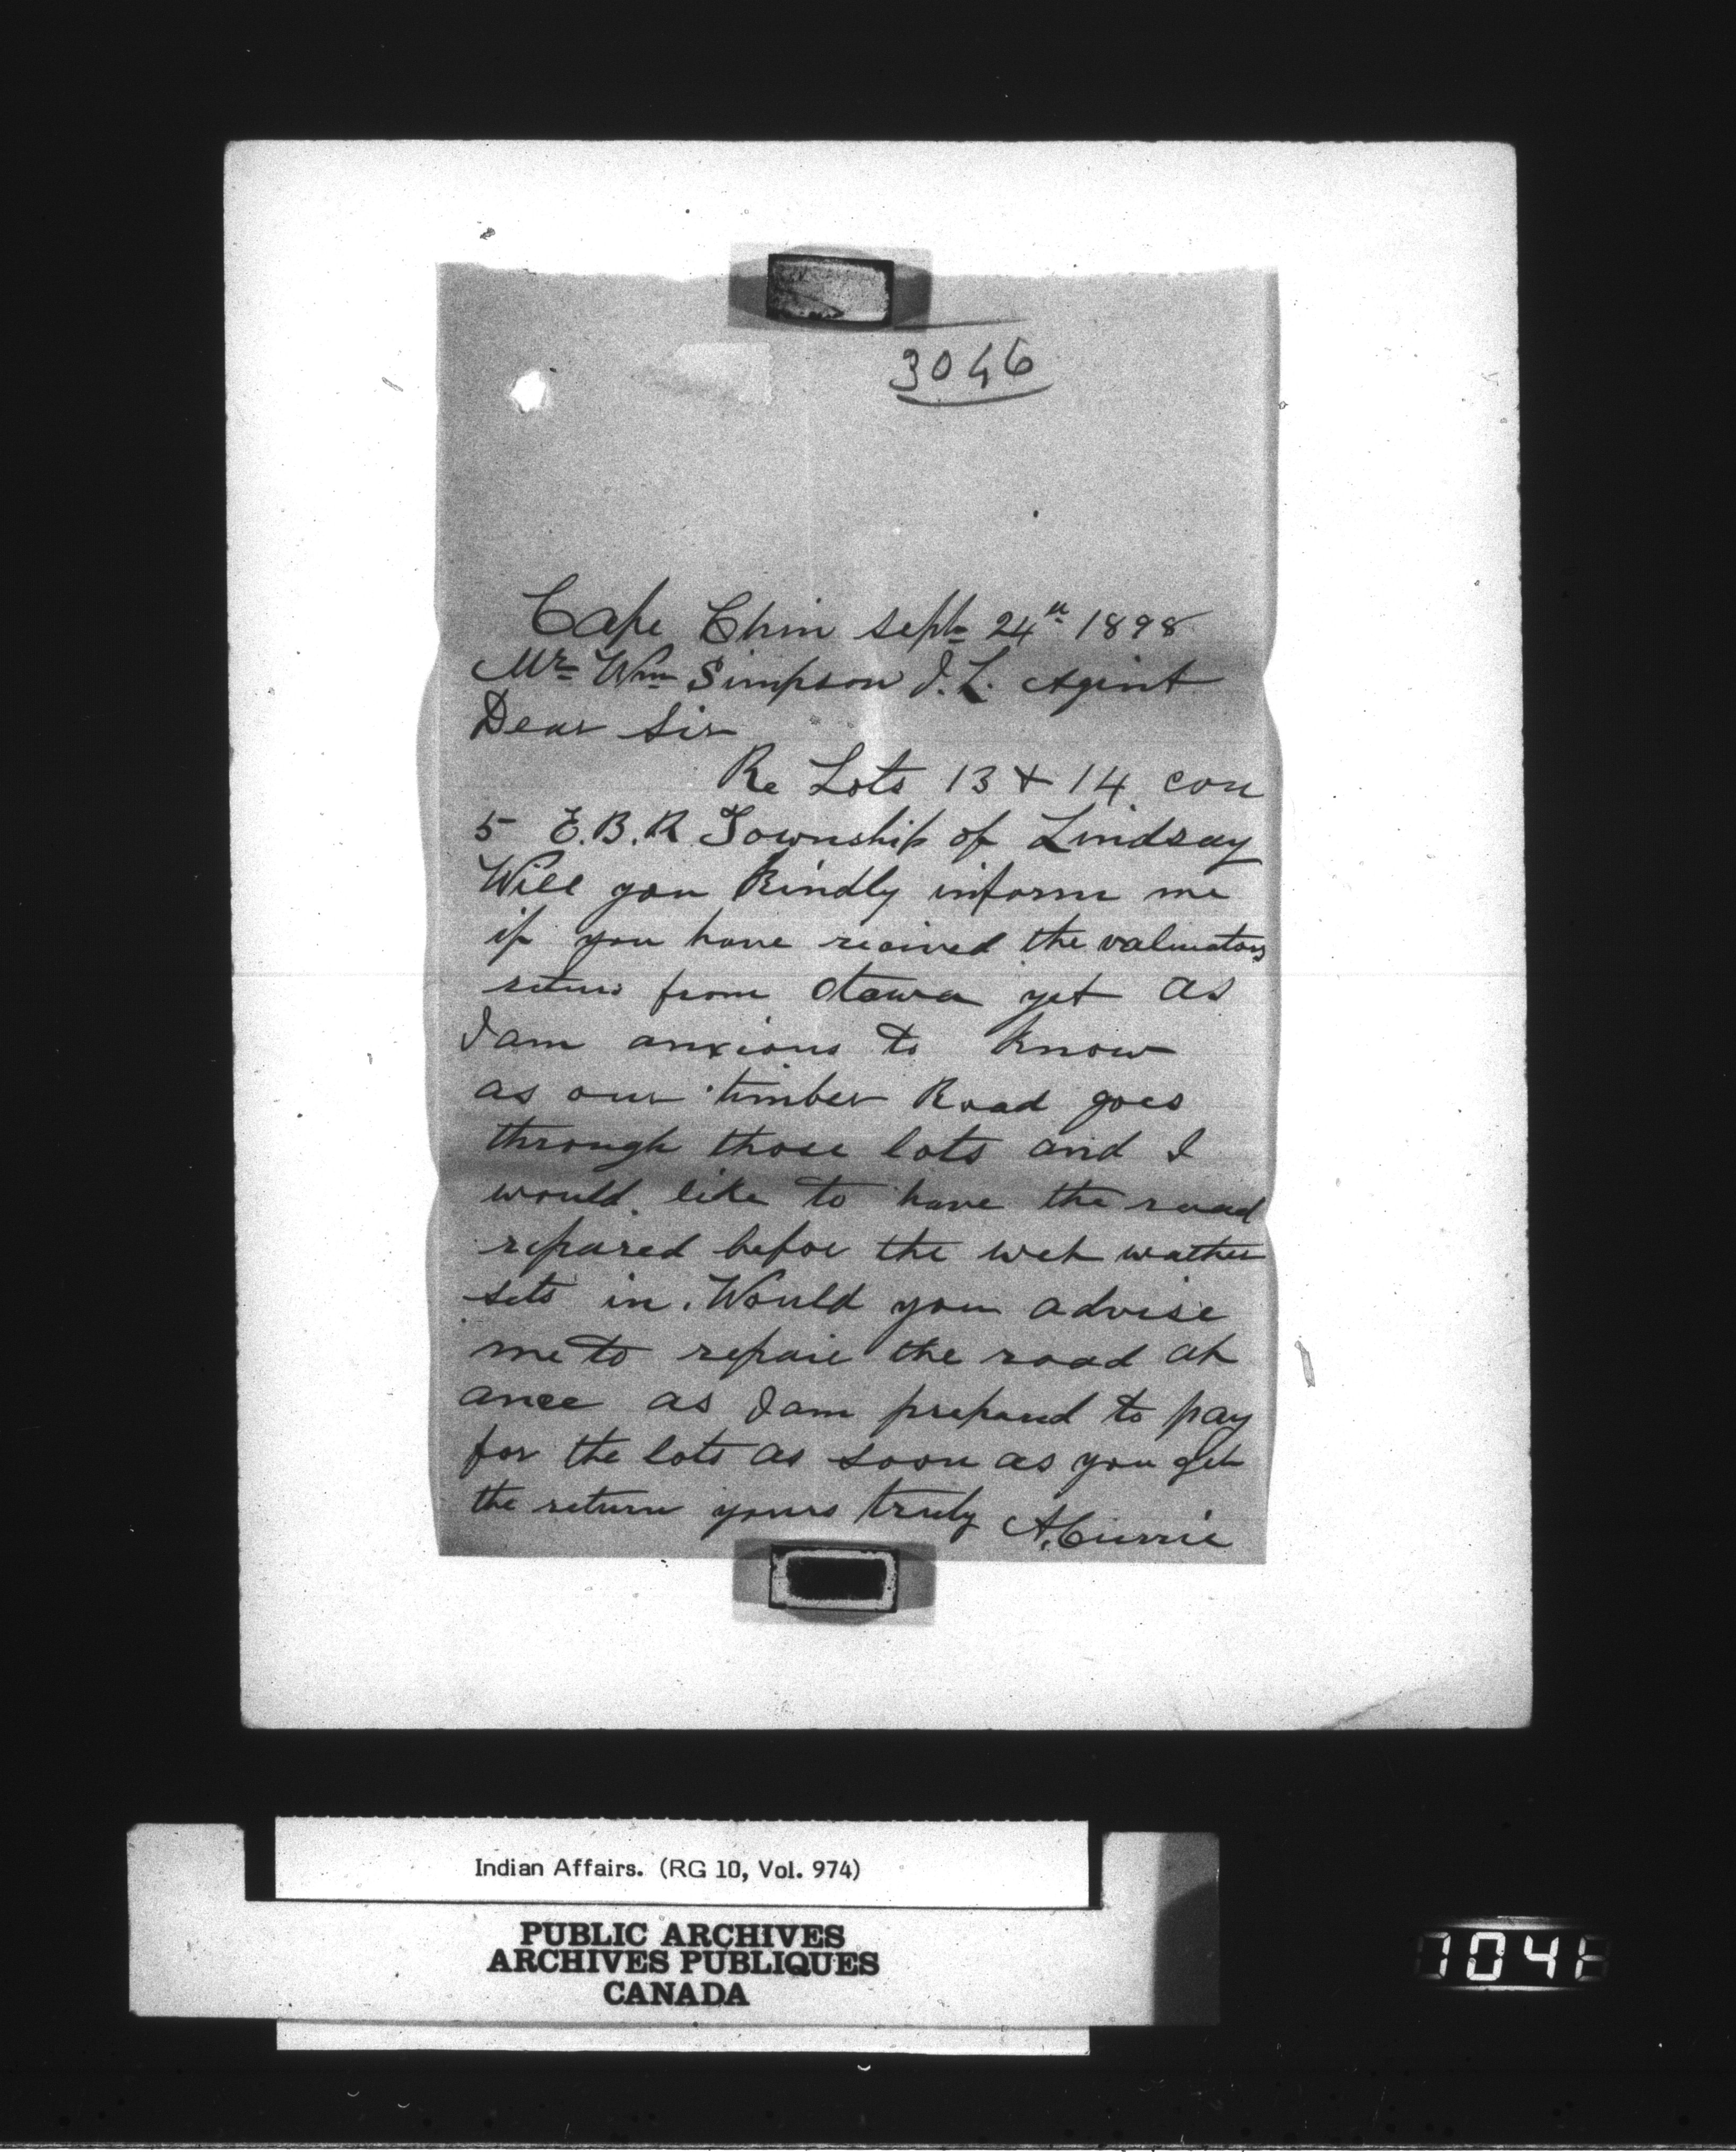 3046
Cape Chin sept 24th 1898
Mr Wm Simpson I. L. Agint
Dear Sir
Re Lots 13 & 14 con
5 E.B.R Township of Lindsay
Will you Kindly inform me
if you have recived the valuators
return from Otawa yet as
I am anxious to Know
as our timber Road goes
through those lots and I
would like to have the road
repared befoe the wet wather
sets in. Would you advise
me to repaie the road at
once as I am prepared to pay
for the lots as soon as you get
the return yours truly A. Currie
Indian Affairs. (RG 10, Vol. 974)
PUBLIC ARCHIVES
ARCHIVES PUBLIQUES
CANADA
1041